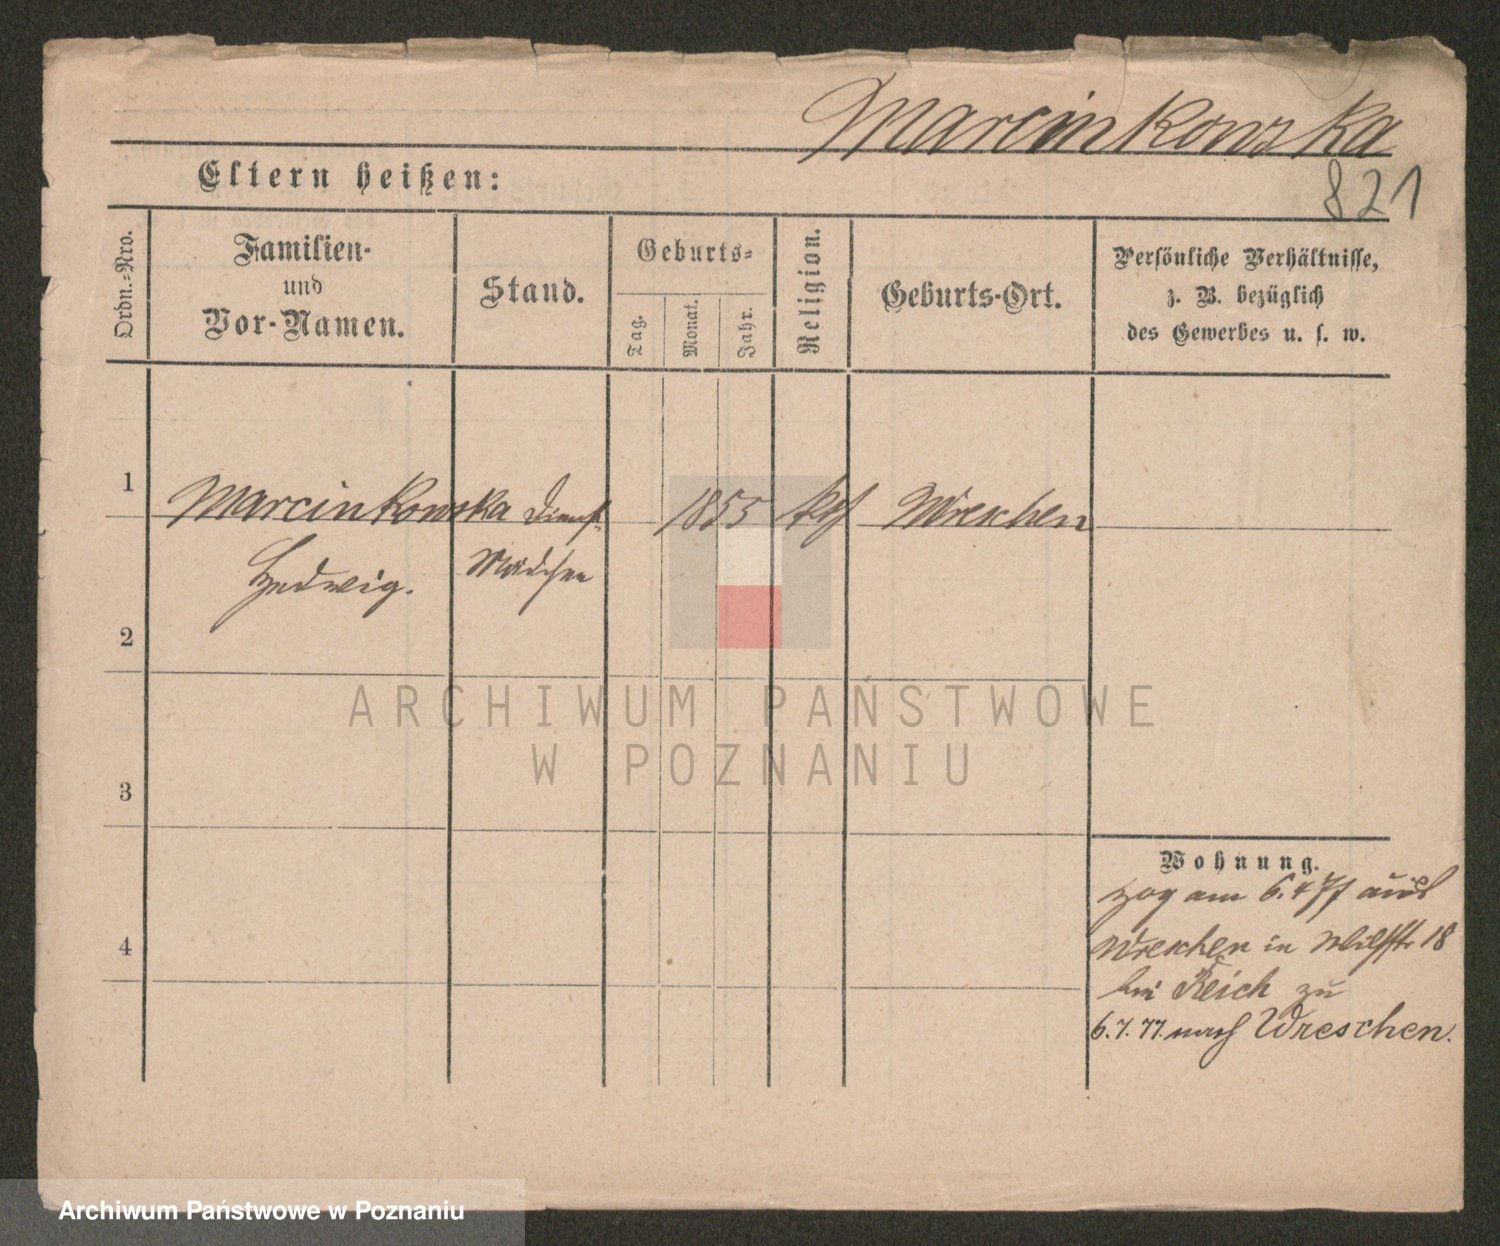 Marcinkowska
821
Eltern heißen:
Ordn.-Nro.
Familien-
und
Vor-Namen.
Stand.
Geburts-
Tag.
Monat.
Jahr.
Religion.
Geburts-Ort.
Persönliche Verhältnisse,
z. B. bezüglich
des Gewerbes u. s. w.
1
Marcinkowska Dienst- 1855 kth Wreschen
Hedwig. Mädchen
2
3
4
Wohnung.
zog am 6.4 77 aus
Wreschen in 18
bei Reich zu
6.7.77. nach Wreschen.
ARCHIWUM PAŃSTWOWE
W POZNANIU
Archiwum Państwowe w Poznaniu